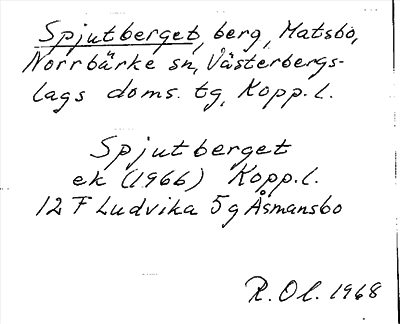 Spjutberget, berg, Matsbo,
Norrbärke sn, Västerbergs-
lags doms. tg, Kopp. l.
Spjutberget
ek (1966) Kopp. l.
12 F Ludvika 5g Åsmansbo
R. Ol. 1968